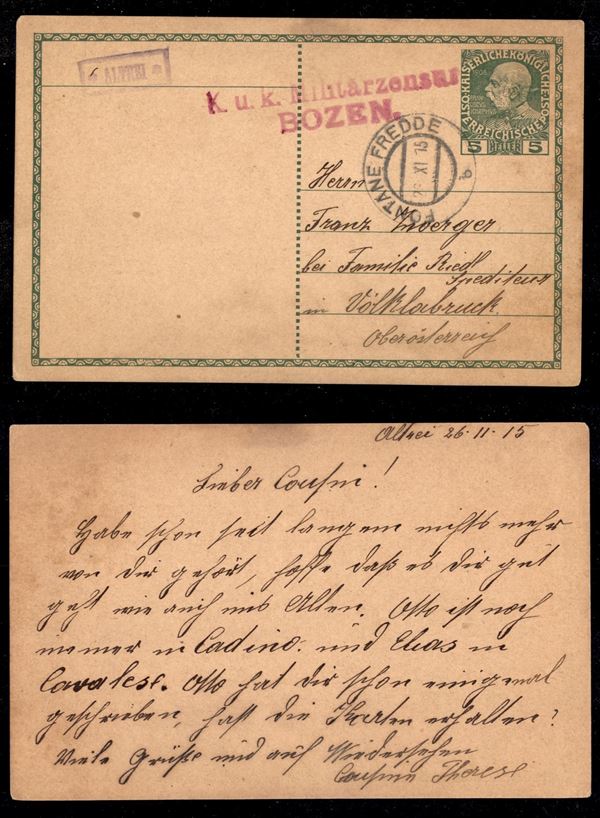 ALTREI
K. u. k. Militärzensur
BOZEN.
K.K. KAISERLICHE KÖNIGLICHE ÖST
ERREICHISCHE P
5 HELLER 5
FONTANE FREDDE
XI 15
b
Herrn
Franz
bei Familie Riedl
Spediteur
in Völklabruck
Oberösterreich
Altrei 26.11.15
Lieber Cousin!
Habe schon seit langem nichts mehr
von dir gehört, hoffe daß es Dir gut
geht wie auch uns Allen. Otto ist noch
immer in Cadino. und Elias in
Cavalese. Otto hat dir schon einigemal
geschrieben, hast die Karten erhalten?
Viele Grüße und auf Wiedersehen
Cousine Therese